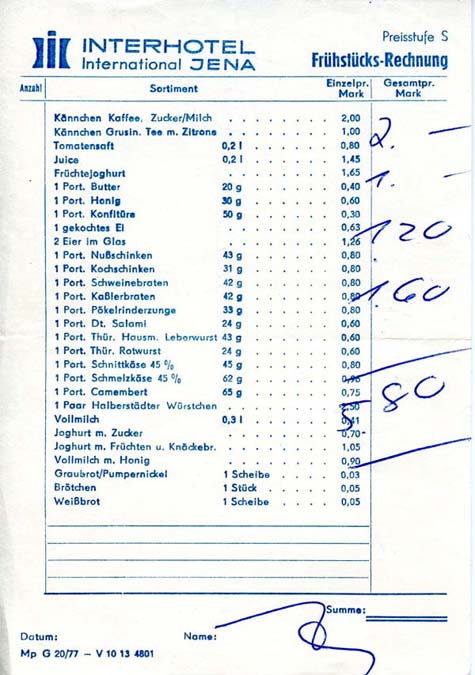 INTERHOTEL
International JENA
Preisstufe S
Frühstücks-Rechnung
Anzahl Sortiment Einzelpr. Mark Gesamtpr. Mark
Kännchen Kaffee, Zucker/Milch . . . . . . . 2,00
Kännchen Grusin. Tee m. Zitrone . . . . . . . 1,00
2. —
Tomatensaft 0,2 l . . . . . 0,80
Juice 0,2 l . . . . . 1,45
Früchtejoghurt . . . . . . . 1,65
1. —
1 Port. Butter 20 g . . . . . 0,40
1 Port. Honig 30 g . . . . . 0,60
1 Port. Konfitüre 50 g . . . . . 0,30
1 gekochtes Ei . . . . . . . 0,63
120
2 Eier im Glas . . . . . . . 1,26
1 Port. Nußschinken 43 g . . . . . 0,80
1 Port. Kochschinken 31 g . . . . . 0,80
1 Port. Schweinebraten 42 g . . . . . 0,80
1 Port. Kaßlerbraten 42 g . . . . . 0,80
1.60
1 Port. Pökelrinderzunge 33 g . . . . . 0,80
1 Port. Dt. Salami 24 g . . . . . 0,60
1 Port. Thür. Hausm. Leberwurst 43 g . . . . . 0,60
1 Port. Thür. Rotwurst 24 g . . . . . 0,60
1 Port. Schnittkäse 45 % 45 g . . . . . 0,80
1 Port. Schmelzkäse 45 % 62 g . . . . . 0,96
1 Port. Camembert 65 g . . . . . 0,75
5 80
1 Paar Halberstädter Würstchen . . . . . . . 2,50
Vollmilch 0,3 l . . . . . 0,41
Joghurt m. Zucker . . . . . . . 0,70
Joghurt m. Früchten u. Knäckebr. . . . . . . 1,05
Vollmilch m. Honig . . . . . . . 0,90
Graubrot/Pumpernickel 1 Scheibe . . . . 0,03
Brötchen 1 Stück . . . . . 0,05
Weißbrot 1 Scheibe . . . . 0,05
Summe:
Datum: Name:
Mp G 20/77 – V 10 13 4801